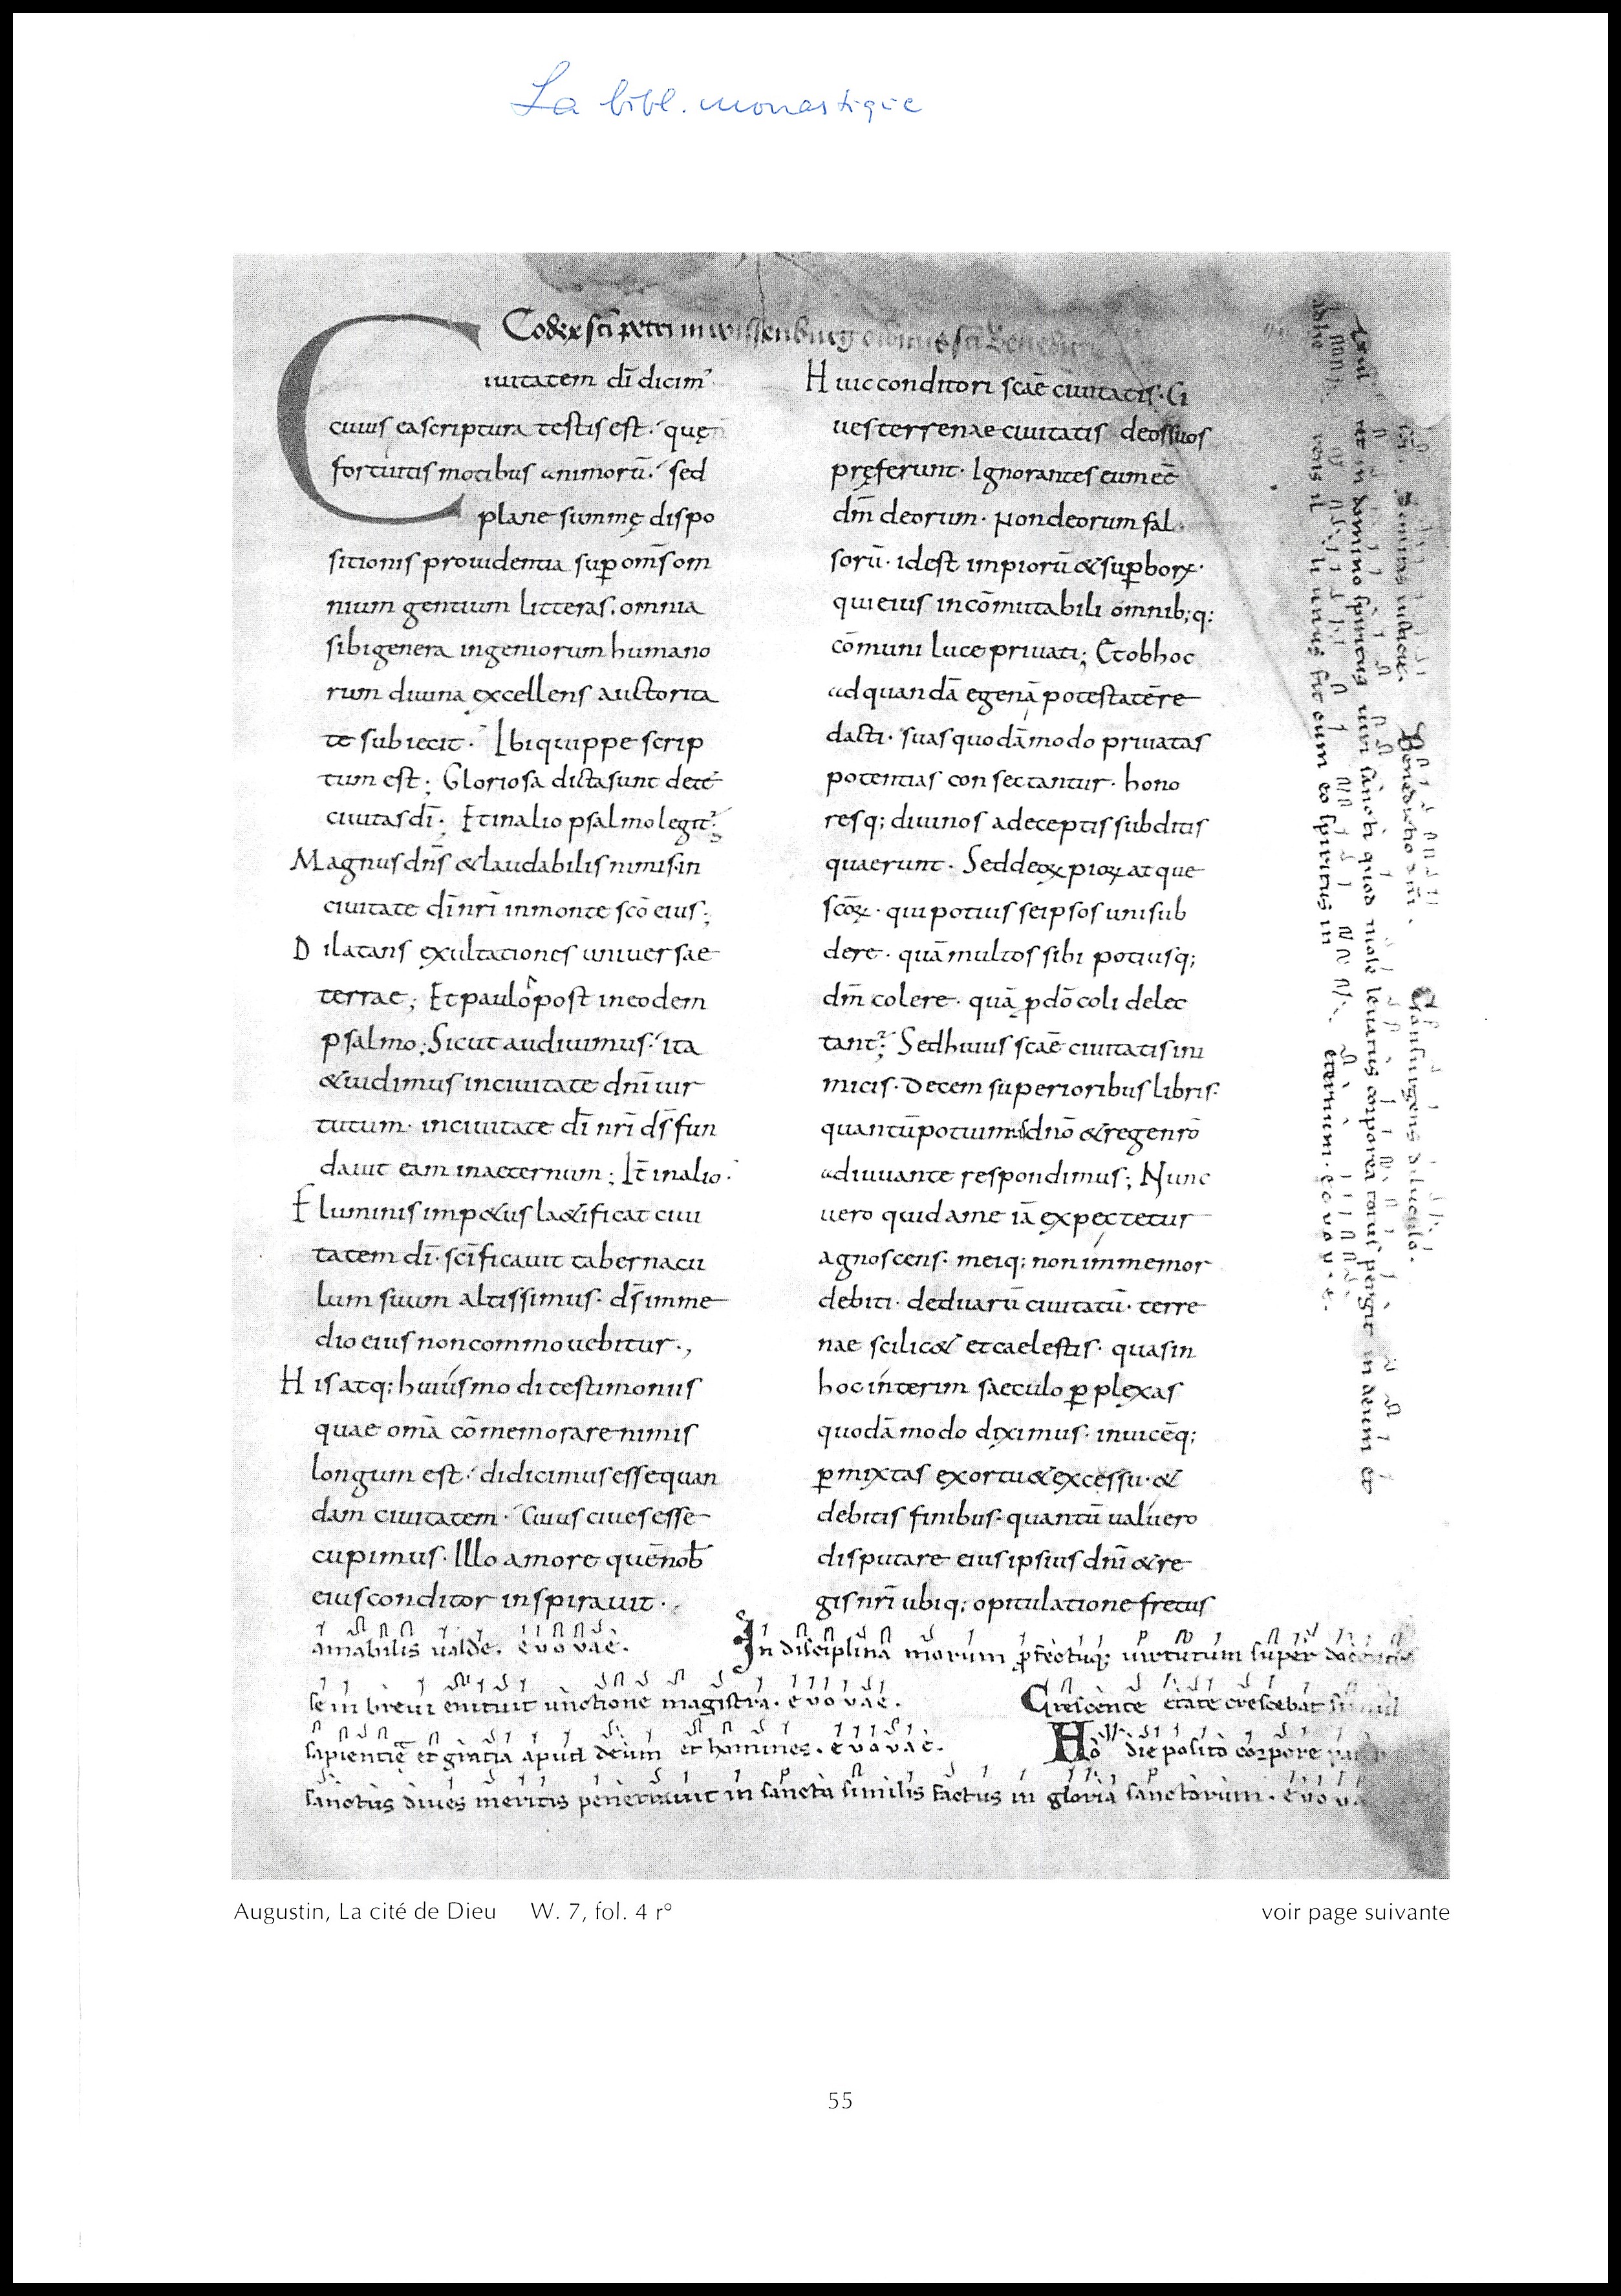 La bibl. monastique
Codex scī petri in wissenburg ordinis scī Benedicti
Ciuitatem dī dicim᾽
cuius ea scriptura testis est. quę
fortuitis motibus animorū. sed
plane summę dispo
sitionis prouidentia sup om̄s om
nium gentium litteras. omnia
sibi genera ingeniorum humano
rum diuina excellens auctorita
te subiecit. Ibi quippe scrip
tum est; Gloriosa dicta sunt de te
ciuitas dī. Et in alio psalmo legit᾽
Magnus dn̄s & laudabilis nimis. in
ciuitate dī nrī in monte scō eius;
Dilatans exultationes uniuersae
terrae; Et paulo post in eodem
psalmo; Sicut audiuimus. ita
& uidimus in ciuitate dnī uir
tutum. in ciuitate dī nrī ds̄ fun
dauit eam in aeternum; It̄ in alio.
Fluminis imp&us la&ificat ciui
tatem dī. scīficauit tabernacu
lum suum altissimus. ds̄ in me
dio eius non commouebitur.,
His atq; huiusmodi testimoniis
quae omā cōmemorare nimis
longum est. didicimus esse quan
dam ciuitatem. Cuius ciues esse
cupimus. Illo amore quē nob̄
eius conditor inspirauit.
Huic conditori scāe ciuitatis. Ci
ues terrenae ciuitatis deos suos
pręferunt. Ignorantes eum eē
dm̄ deorum. Non deorum fal
sorū. id est impiorū & supborꝝ.
qui eius incōmutabili omnib; q:
cōmuni luce priuati; Et ob hoc
ad quandā egenā potestatē re
dacti. suas quodāmodo priuatas
potentias consectantur. hono
resq; diuinos a deceptis subditis
quaerunt. Sed deoꝝ pioꝝ atque
scōꝝ. qui potius se ipsos uni sub
dere. quā multos sibi potiusq;
dm̄ colere. quā p dō coli delec
tant᾽; Sed huius scāe ciuitatis ini
micis. Decem superioribus libris.
quantū potuimus dnō & rege nrō
adiuuante respondimus; Nunc
uero quid a me iā expectetur
agnoscens. meiq; non immemor
debiti. de duarū ciuitatū. terre
nae scilic& et caelestis. quas in
hoc interim saeculo pplexas
quodāmodo diximus. inuicēq;
pmixtas exortu & excessu. &
debitis finibus. quantū ualuero
disputare eius ipsius dnī & re
gis nrī ubiq; opitulatione fretus
amabilis ualde. euouae. In disciplina morum pfectuq; uirtutum super
se in breui enituit unctione magistra. euouae. Crescente etate crescebat
sapientię et gratia apud deum et homines. euouae. Ho die posito corpore
sanctus diues meritis penetrauit in sancta similis factus in gloria sanctorum. euoua
Benedicho Consurgens diluculo.
et in domino spiritus uiri sancti quod mole leuatus corporea totus pergit in deum et
adhe unus fit cum eo spiritus in eternum. euouae.
Augustin, La cité de Dieu W. 7, fol. 4 r° voir page suivante
55